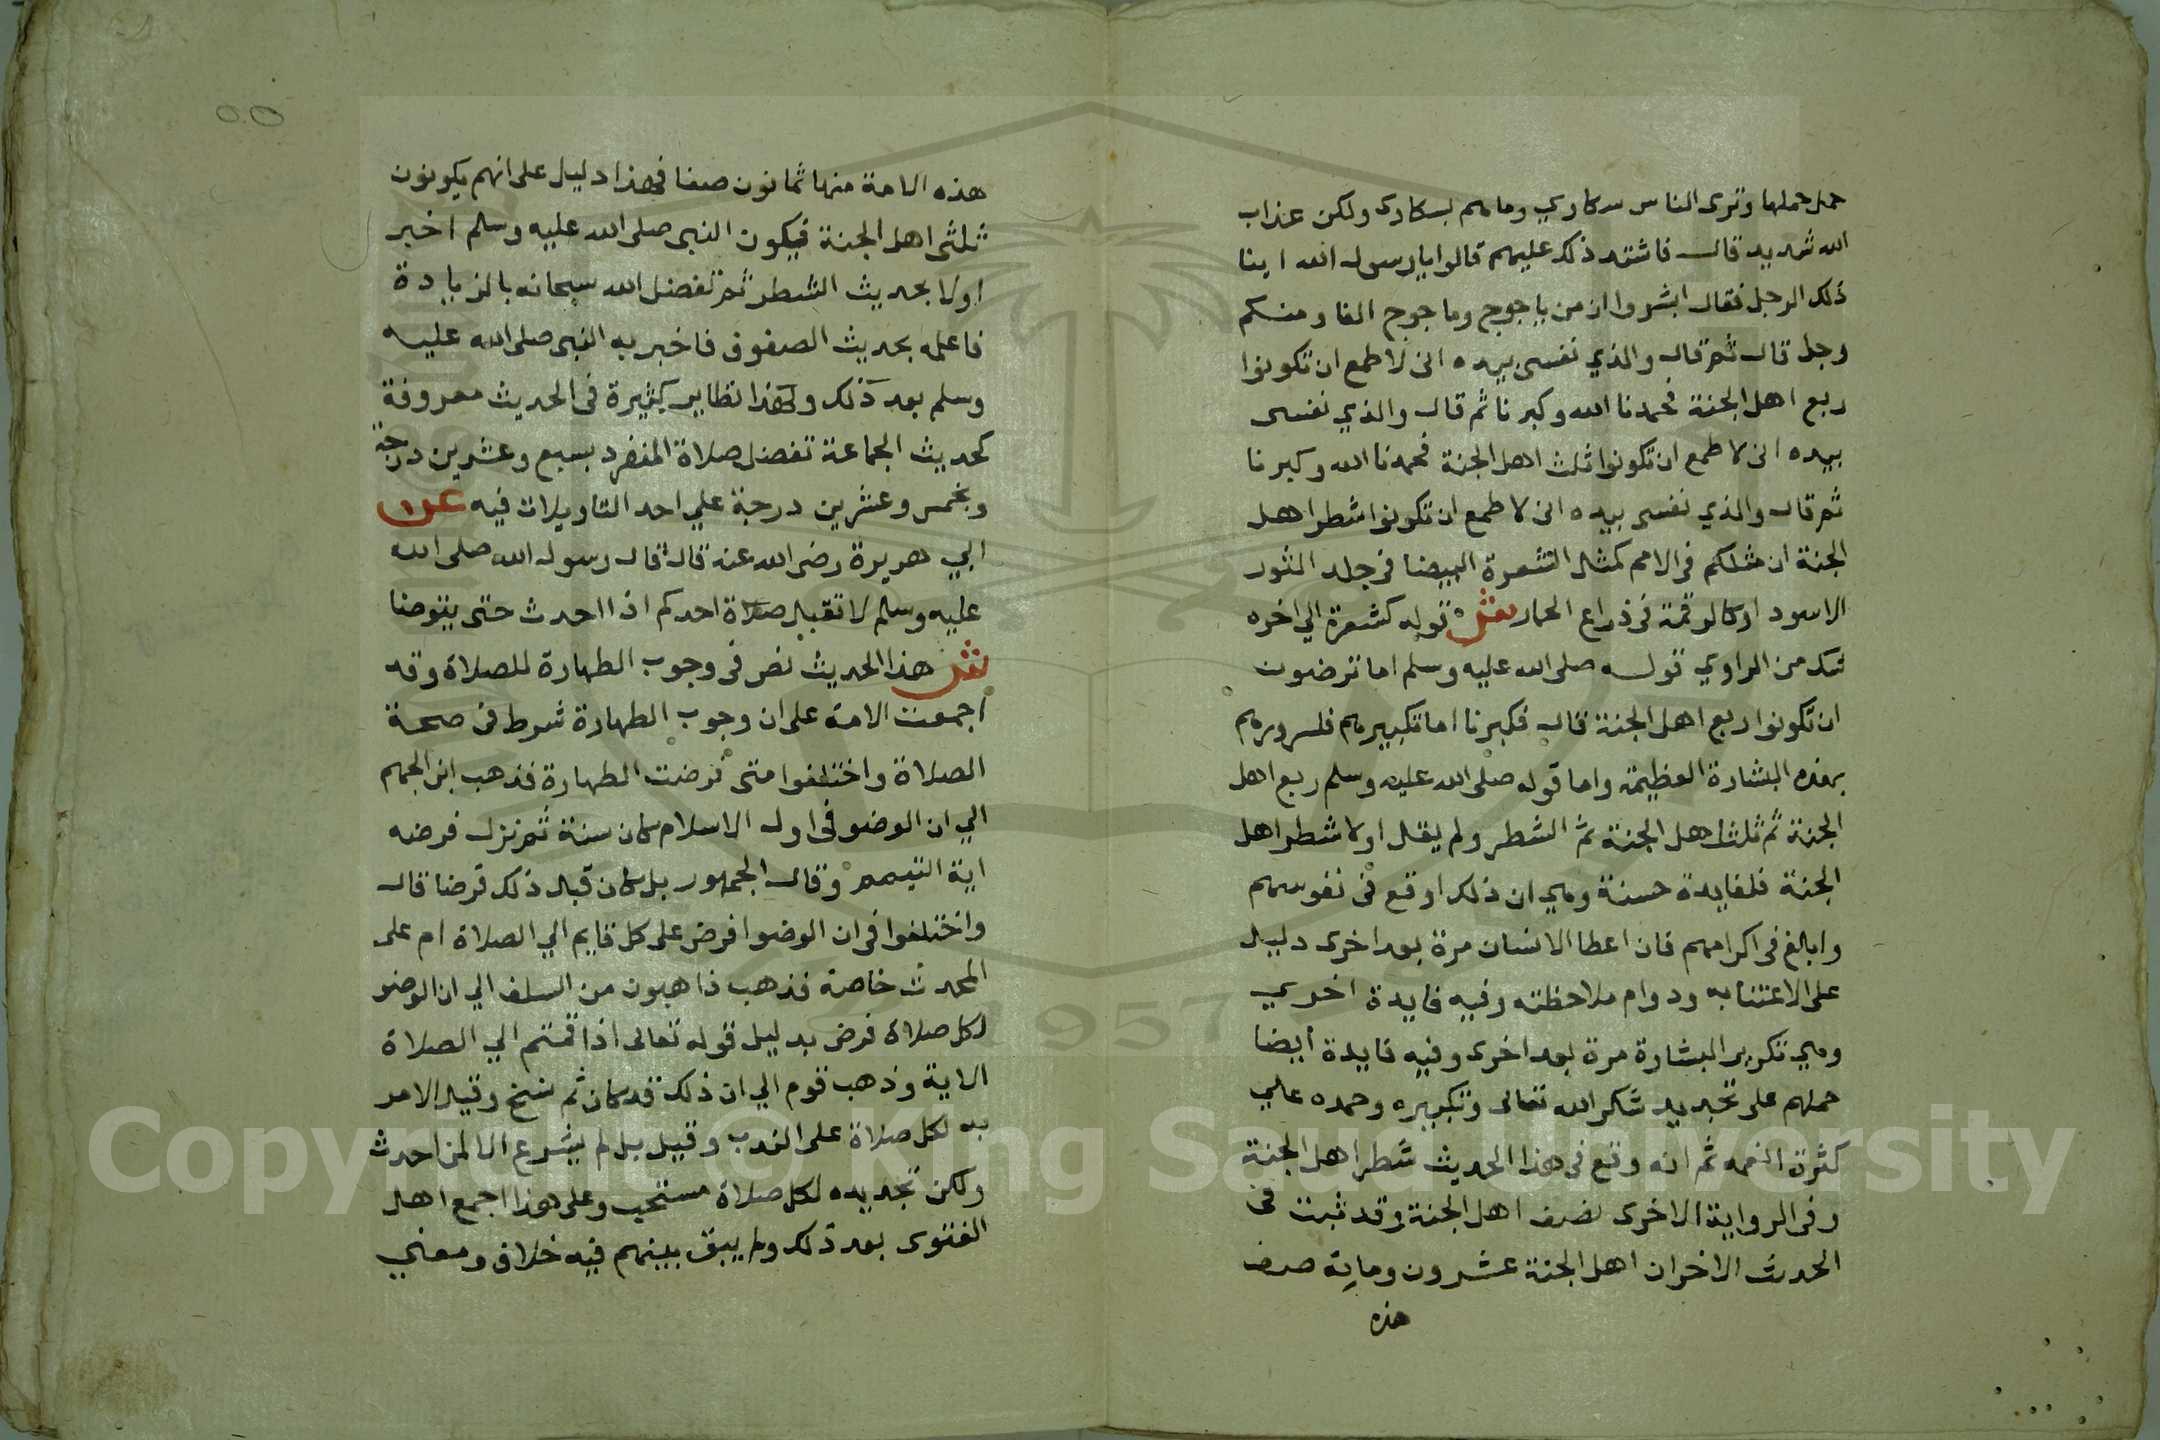 حمل حملها وترى الناس سكاري وما هم بسكارى ولكن عذاب
الله شديد قال فاشتد ذلك عليهم قالوا يارسول الله اينا
ذلك الرجل فقال ابشروا ان من ياجوج وماجوج الفا ومنكم
رجل قال ثم قال والذي نفسي بيده اني لاطمع ان تكونوا
ربع اهل الجنة فحمدنا الله وكبرنا ثم قال والذي نفسى
بيده اني لاطمع ان تكونوا ثلث اهل الجنة فحمدنا الله وكبرنا
ثم قال والذي نفسى بيده اني لاطمع ان تكونوا شطر اهل
الجنة ان مثلكم في الامم كمثل الشعرة البيضا في جلد الثور
الاسود او كالرقمة في ذراع الحمار ش قوله كشعرة الي اخره
شك من الراوي قوله صلى الله عليه وسلم اما ترضون
ان تكونوا ربع اهل الجنة قال فكبرنا اما تكبيرهم فلسرورهم
بهذه البشارة العظيمة واما قوله صلى الله عليه وسلم ربع اهل
الجنة ثم ثلث اهل الجنة ثم الشطر ولم يقل اولا شطر اهل
الجنة فلفايدة حسنة وهي ان ذلك اوقع في نفوسهم
وابلغ في اكرامهم فان اعطا الانسان مرة بعد اخرى دليل
على الاعتنا به ودوام ملاحظته وفيه فايدة اخري
وهي تكرير البشارة مرة بعد اخرى وفيه فايدة ايضا
حملهم على تجديد شكر الله تعالى وتكبيره وحمده علي
كثرة النعمه ثم انه وقع في هذا الحديث شطر اهل الجنة
وفي الرواية الاخرى نصف اهل الجنة وقد ثبت في
الحديث الاخر ان اهل الجنة عشرون وماية صف
هذه
هذه الامة منها ثمانون صفا فهذا دليل على انهم يكونون
ثلثى اهل الجنة فيكون النبى صلى الله عليه وسلم اخبر
اولا بحديث الشطر ثم تفضل الله سبحانه بالزيادة
فاعلمه بحديث الصفوف فاخبر به النبى صلى الله عليه
وسلم بعد ذلك ولهذا نظاير كثيرة فى الحديث معروفة
كحديث الجماعة تفضل صلاة المنفرد بسبع وعشرين درجة
وبخمس وعشرين درجة علي احد التاويلات فيه عن
ابي هريرة رضى الله عنه قال قال رسول الله صلى الله
عليه وسلم لا تقبل صلاة احدكم اذا احدث حتى يتوضا
ش هذا الحديث نص في وجوب الطهارة للصلاة وقد
اجمعت الامة على ان وجوب الطهارة شرط في صحة
الصلاة واختلفوا متى فرضت الطهارة فذهب ابن الجهم
الي ان الوضو في اول الاسلام كان سنة ثم نزل فرضه
اية التيمم وقال الجمهور بل كان قبل ذلك فرضا قال
واختلفوا في ان الوضوا فرض على كل قايم الي الصلاة ام على
المحدث خاصة فذهب ذاهبون من السلف الي ان الوضو
لكل صلاة فرض بدليل قوله تعالى اذا قمتم الي الصلاة
الاية وذهب قوم الي ان ذلك قد كان ثم نسخ وقيل الامر
به لكل صلاة على الندب وقيل بل لم يشرع الا لمن احدث
ولكن تجديده لكل صلاة مستحب وعلى هذا اجمع اهل
الفتوى بعد ذلك ولم يبق بينهم فيه خلاف ومعني
1957
Copyright © King Saud University